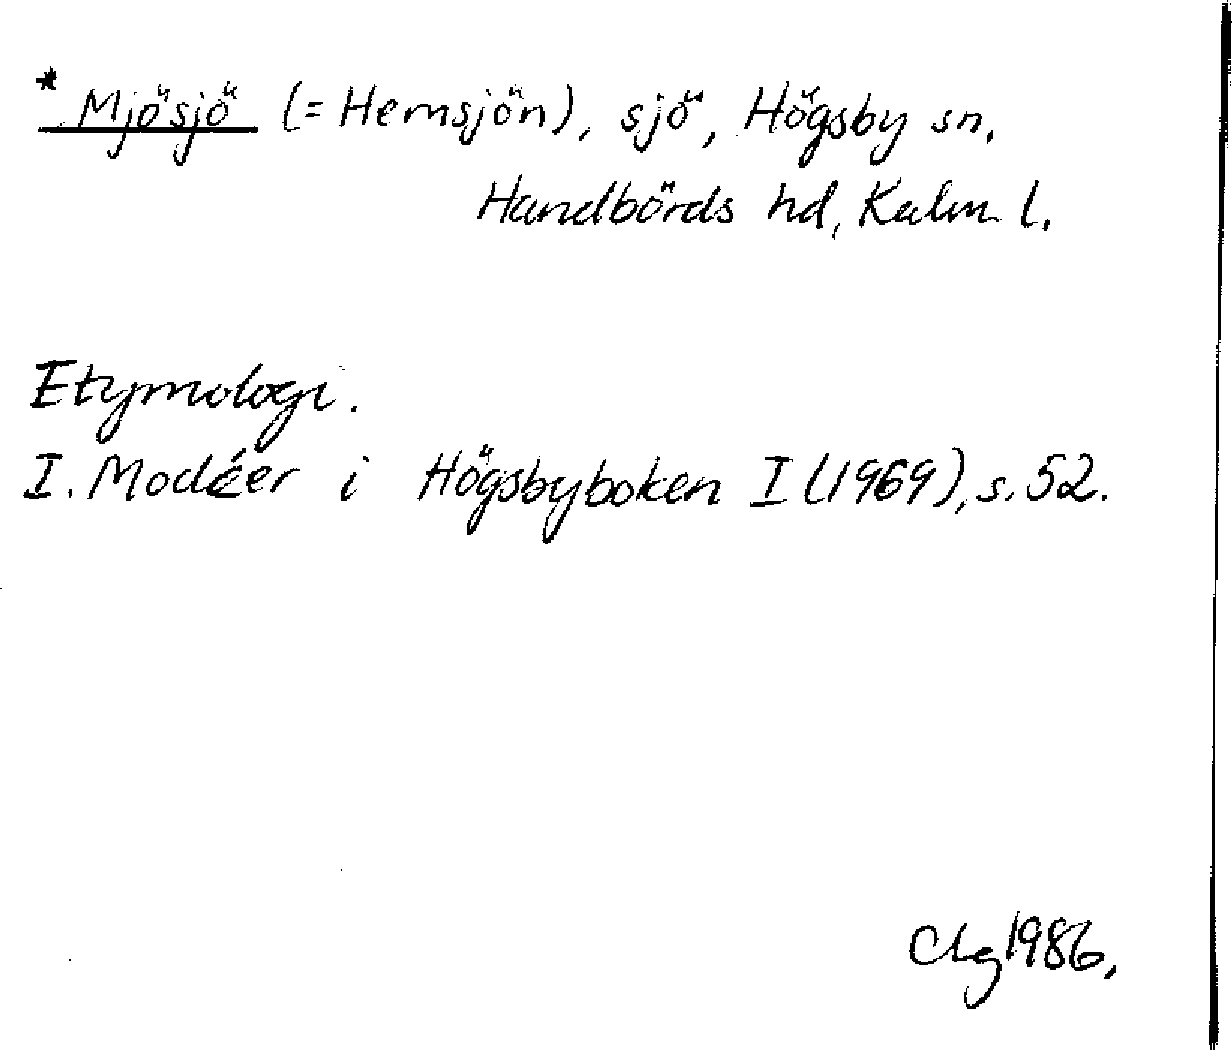 * Mjösjö (= Hemsjön), sjö, Högsby sn.
Handbörds hd, Kalm l.
Etymologi.
I. Modéer i Högsbyboken I (1969), s. 52.
Clg 1986.